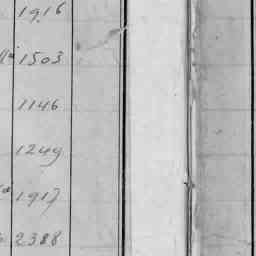 1916
1503
1146
1249
1917
2388